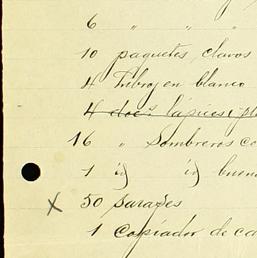 6 " " "
10 paquetes clavos
4 libros en blanco
4 doc.s lápices
16 " Sombreros
1 id id buen
× 50 sarapes
1 Copiador de ca